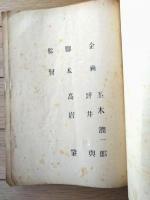 企画
玉木潤一郎
坪井與
脚本
高岩肇
監督